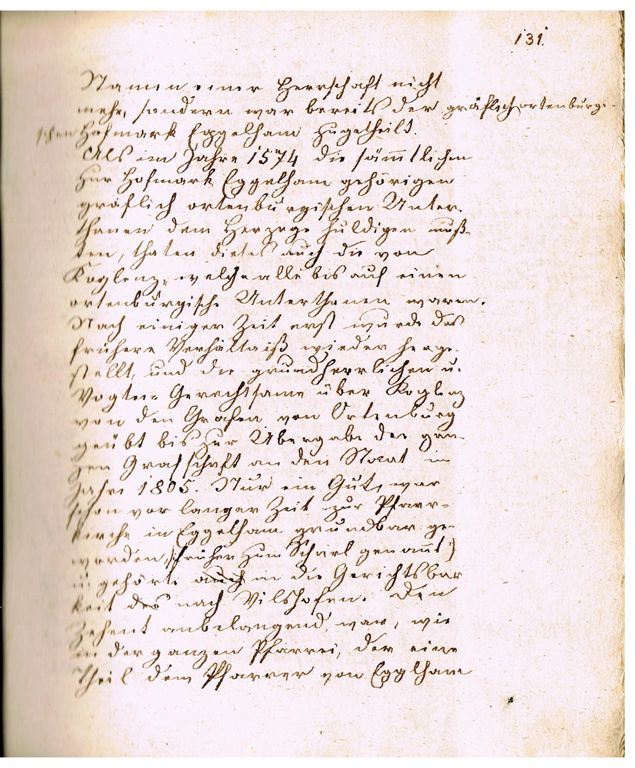 131.
Namen einer Herrschaft nicht
mehr, sondern war bereits der gräflich ortenburgi-
schen Hofmark Egglham zugetheilt.
Als im Jahre 1574 die sämmtlichen
zur Hofmark Eggelham gehörigen
gräflich ortenburgischen Unter-
thanen dem Herzoge huldigen muß-
ten, thaten dieses auch die von
Koglenz, welche alle bis auf einen
ortenburgische Unterthanen waren.
Nach einiger Zeit erst wurde das
frühere Verhältniß wieder herge-
stellt, und die grundherrlichen u.
Vogtei-Gerechtsame über Koglenz
von den Grafen von Ortenburg
geübt bis zur Übergabe der gan-
zen Grafschaft an den Staat im
Jahre 1805. Nur ein Gut war
schon vor langer Zeit zur Pfarr-
kirche in Eggelham grundbar ge-
worden, (früher zum Scharl genannt)
u. gehörte auch in die Gerichtsbar
keit des nach Vilshofen. Den
Zehent anbelangend, war, wie
in der ganzen Pfarrei, der eine
Theil dem Pfarrer von Egglham